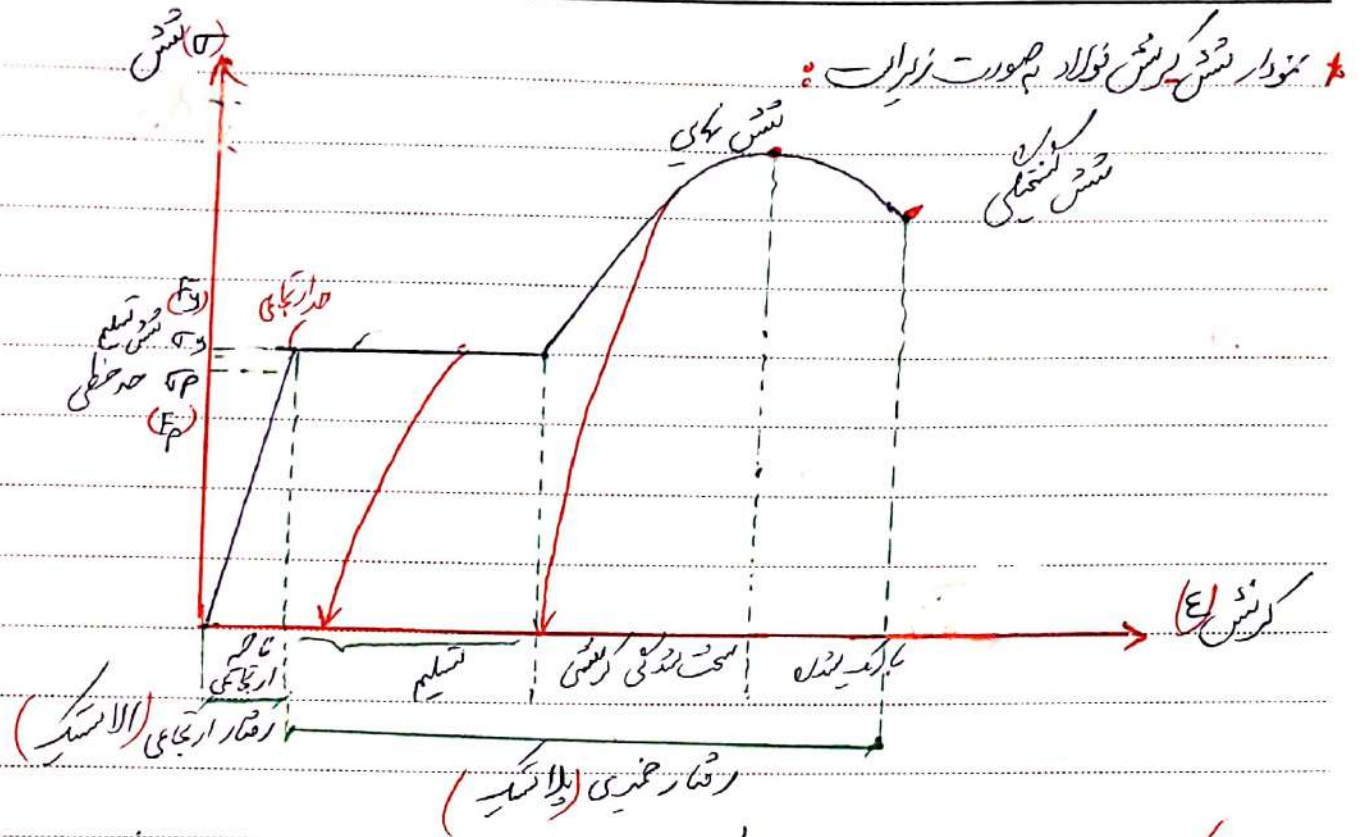 * نمودار تنش کرنش فولاد به صورت زیر است :
تنش (σ)
تنش نهایی
تنش گسیختگی
حد ارتجاعی
(Fy)
تنش تسلیم σy
حد خطی σp
(Fp)
کرنش (ε)
ناحیه ارتجاعی
تسلیم
سخت شدگی کرنشی
باریک شدن
رفتار ارتجاعی (الاستیک)
رفتار خمیری (پلاستیک)